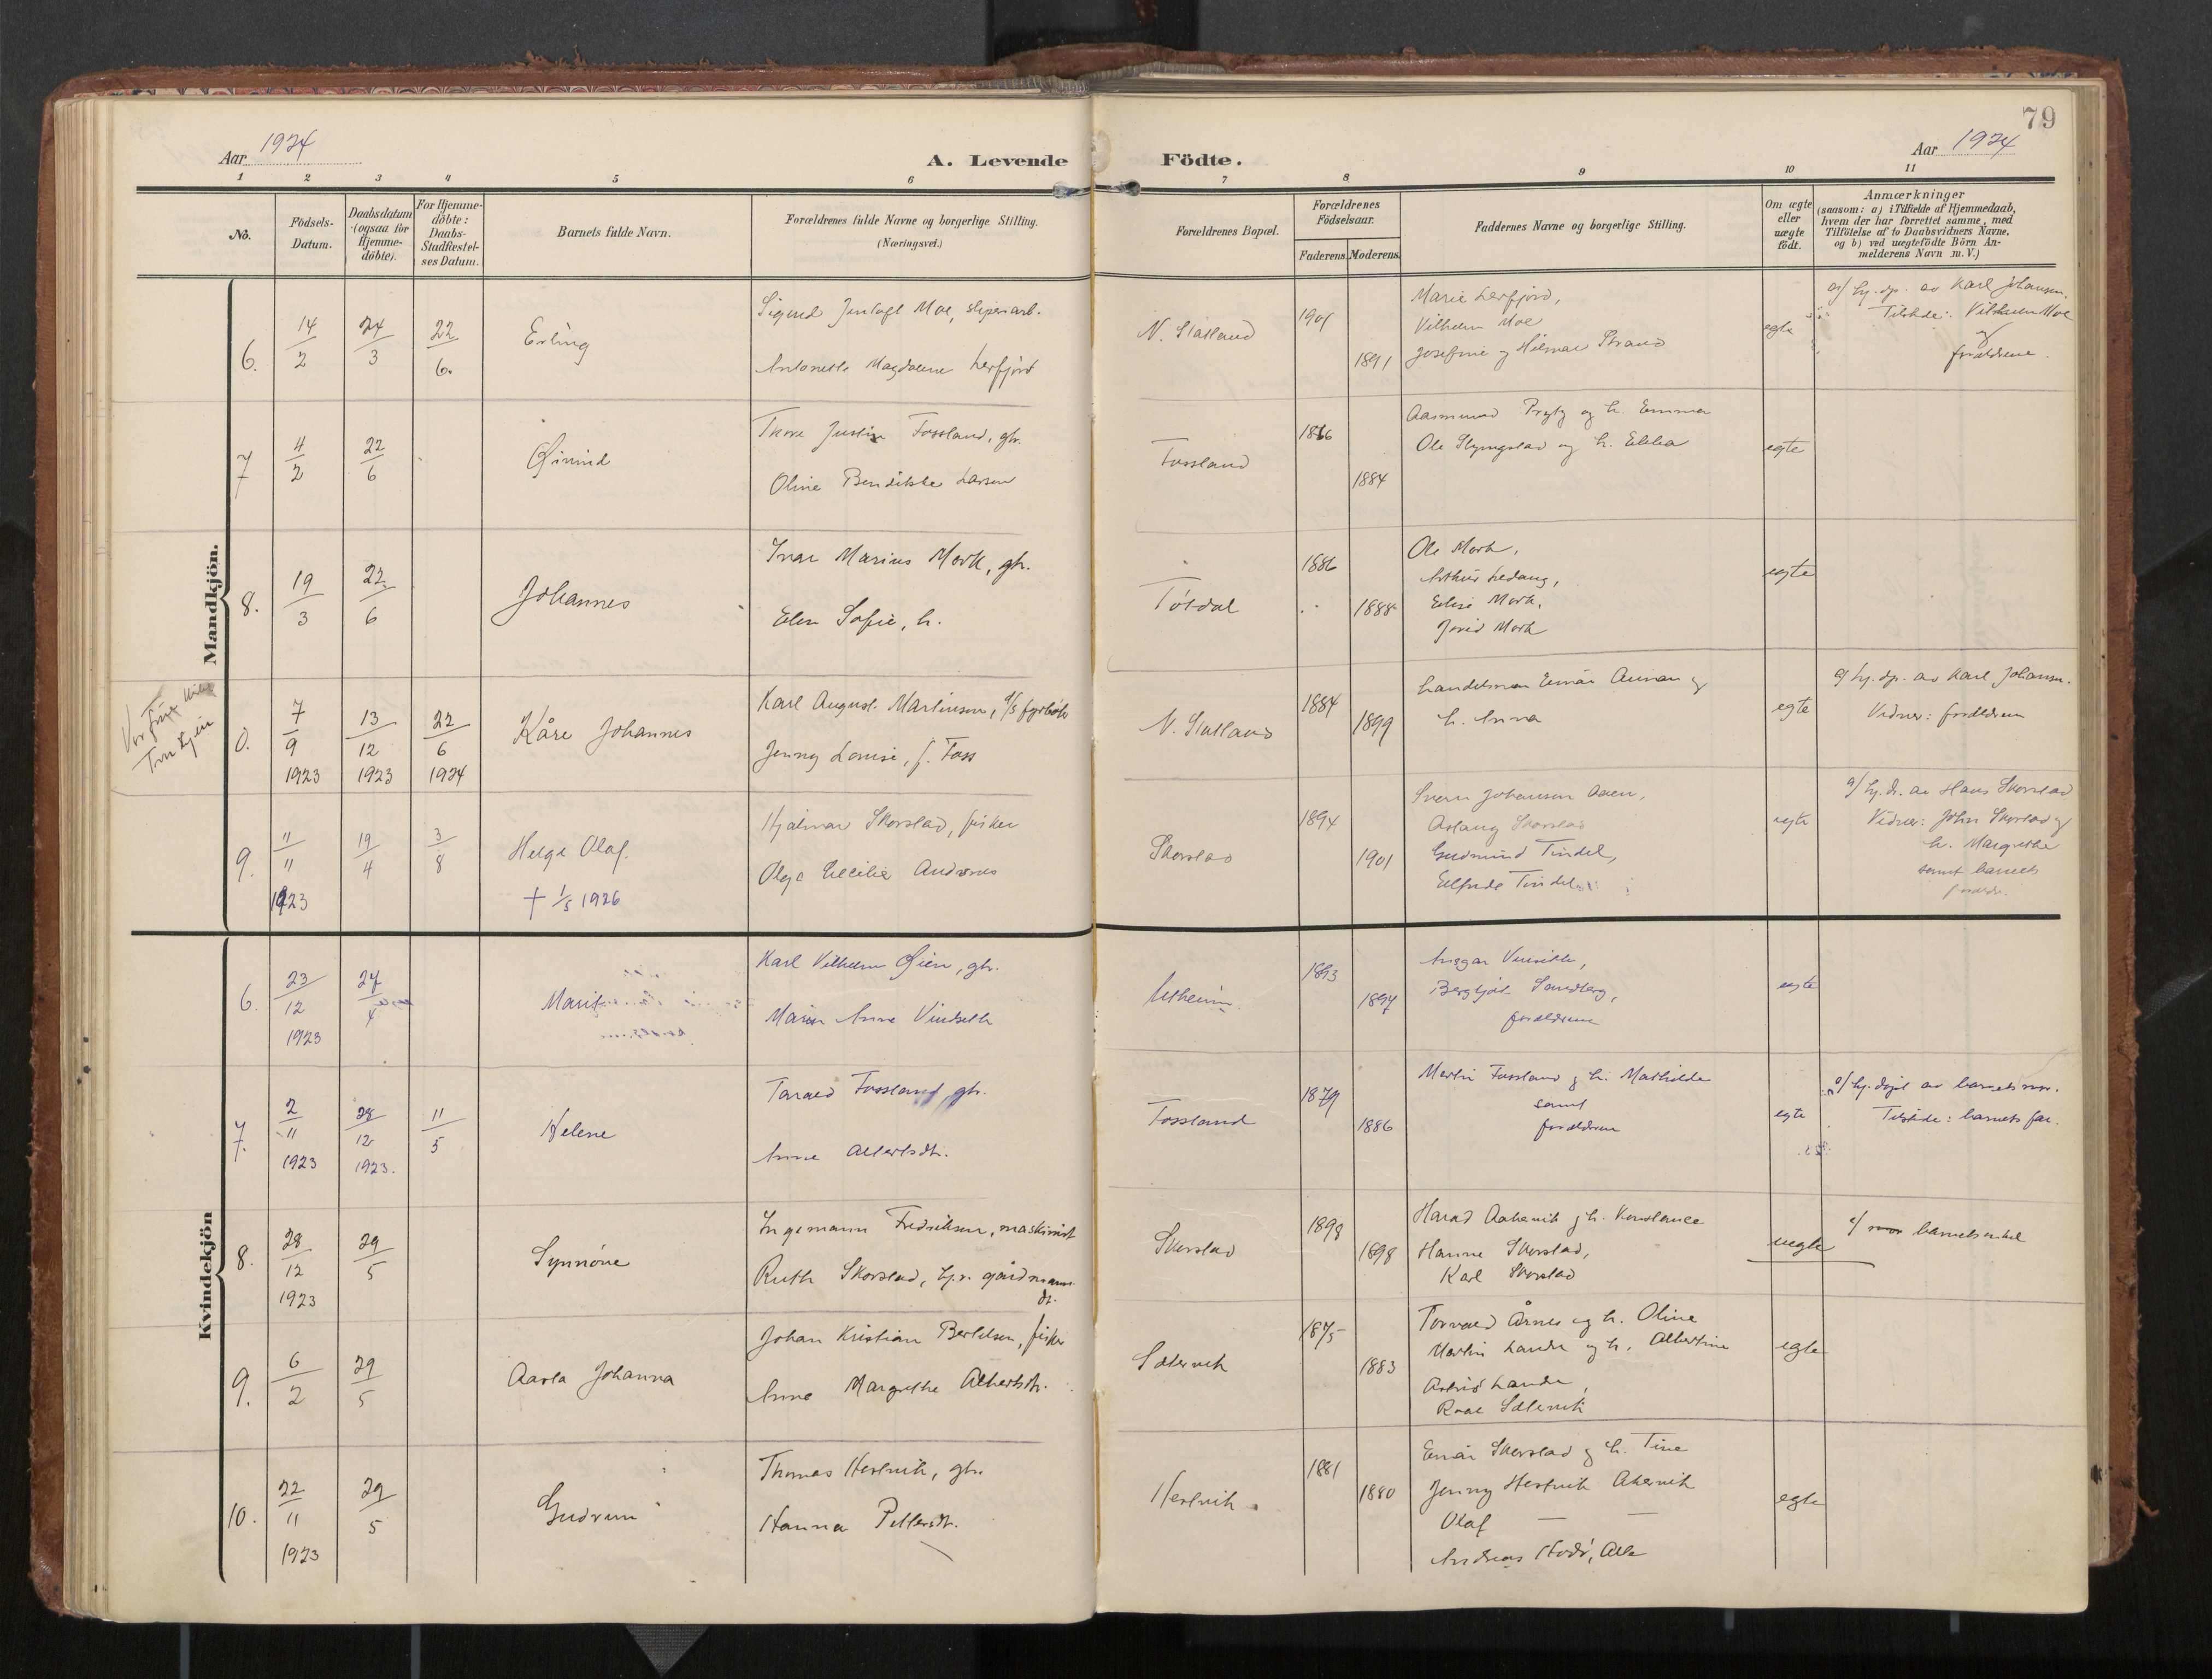 79
Aar 1924
A. Levende Födte.
Aar 1924
1 2 3 4 5 6 7 8 9 10 11
No.
Födsels-
Datum.
Daabsdatum
(ogsaa for
Hjemme-
döbte).
For Hjemme-
döbte:
Daabs-
Stadfæstel-
ses Datum.
Barnets fulde Navn.
Forældrenes fulde Navne og borgerlige Stilling.
(Næringsvei.)
Forældrenes Bopæl.
Forældrenes
Födselsaar.
Faderens. Moderens.
Faddernes Navne og borgerlige Stilling.
Om ægte
eller
uægte
födt.
Anmærkninger
(saasom: a) i Tilfælde af Hjemmedaab,
hvem der har forrettet samme, med
Tilföielse af to Daabsvidners Navne,
og b) ved uægtefödte Börn An-
melderens Navn m. V.)
Mandkjön.
6.
14/2
24/3
22/6.
Erling
Sigurd Moe,
Antonette Magdalene Lerfjord
N. Statland
1901
1891
Marie Lerfjord,
Vilhelm Moe
Josefine og Hilmar Strand
egte
a/ hj. dp. av Karl Johansen.
Tilstede: Vilhelm Moe
og
forældrene.
7
4/2
22/6
Øivind
Thore Justin Fossland, gbr.
Oline Bendikte Larsen
Fossland
1884
Aasmund og h. Emma
Ole og h.
egte
8.
19/3
22/6
Johannes
Ivar Marius Mork, gbr.
Elen Sofie, h.
Tøtdal
1886
1888
Ole Mork,
Arthur Ledang,
Mork,
Mork
egte
0.
7/9
1923
13/12
1923
22/6
1924
Kåre Johannes
Karl August Martinsen,
Jenny Louise, f. Foss
N. Statland
1884
1899
Handelsman Einar Aunan og
h. Anna
egte
a/ hj. dp. av Karl Johansen.
Vidner: forældrene
9.
11/11
1923
19/4
3/8
Helge Olaf.
† 1/5 1926
Hjalmar Skorstad, fisker
Olga Cecilie
Skorstad
1894
1901
Johansen Aaen,
Aslaug Skorstad
Gudmund Tindel,
Elfrida Tindel
egte
a/ hj. d. av Hans Skorstad
Vidner: John Skorstad og
h. Margrethe
samt barnets
forældr.
Kvindekjön
6.
23/12
1923
27/4
Marit
Karl Vilhelm Øien, gbr.
Anne Vindseth
Utheim
1893
1897
Ansgar Vinseth,
Bergljot Sandberg,
forældrene
egte
7.
2/11
1923
28/12
1923.
11/5
Helene
Fossland, gbr.
Anne Albertsdtr.
Fossland
1879
1886
Martin Fossland og h. Mathilde
samt
forældrene
egte
a/ hj. døpt av barnets mor.
Tilstede: barnets far.
8.
28/12
1923
29/5
Synnöve
Ingemann Fredriksen, maskinist
Ruth Skorstad, gårdmanns-
dt.
Skorstad
1898
1898
Harald Aakervik og h. Konstance
Hanne Skorstad,
Karl Skorstad
uegte
barnets onkel
9.
6/2
29/5
Aasta Johanna
Johan Kristian Bertelsen, fisker
Anna Margrethe Albertsdtr.
Sætervik
1875
1883
Torvald Årnes og h. Oline
Martin Lande og h. Albertine
Astrid Lande,
Sætervik
egte
10.
22/11
1923
29/5
Gudrun
Thomas Hestvik, gbr.
Hanna Pettersdtr.
Hestvik
1881
1880
Einar Skorstad og h. Tine
Jenny Hestvik Akervik
Olaf — —
Andreas
egte